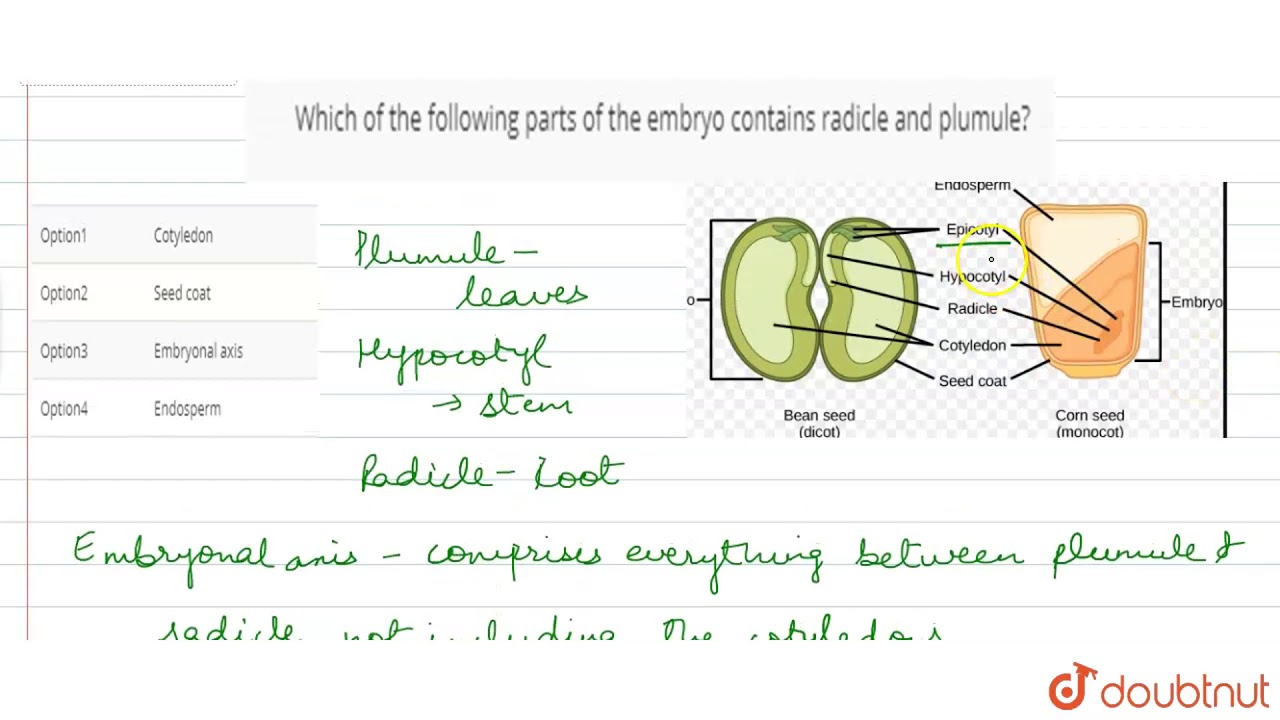 Which of the following parts of the embryo contains radicle and plumule?
Option1 Cotyledon
Option2 Seed coat
Option3 Embryonal axis
Option4 Endosperm
Plumule –
leaves
Hypocotyl
→ stem
Radicle – Root
Endosperm
Epicotyl
Hypocotyl
Radicle
Cotyledon
Seed coat
o
Embryo
Bean seed
(dicot)
Corn seed
(monocot)
Embryonal axis – comprises everything between plumule &
radicle not including the cotyledons
doubtnut